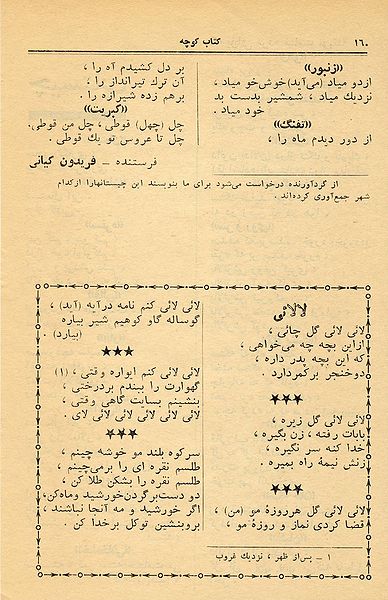 ۱۶۰
کتاب کوچه
((زنبور))
ازدو میاد (می‌آید) خوش‌خو میاد ،
نزدیك میاد ، شمشیر بدست بد
خود میاد .
((تفنگ))
از دور دیدم ماه را ،
بر دل کشیدم آه را ،
آن ترك تیرانداز را ،
برهم زده شیرازه را .
((کبریت))
چل (چهل) قوطی ، چل من قوطی.
چل تا عروس تو یك قوطی .
فرستنده – فریدون کیانی
از گردآورنده درخواست می‌شود برای ما بنویسند این چیستانهارا ازکدام
شهر جمع‌آوری کرده‌اند .
لالائی
لائی لائی گل چائی ،
ازاین بچه چه می‌خواهی ،
که این بچه پدر داره ،
دوخنجر برکمردارد .
★★★
لائی لائی گل زیره ،
بابات رفته ، زن بگیره ،
خدا کنه سر نگیره ،
زنش نیمهٔ راه بمیره .
★★★
لائی لائی گل هرروزهٔ مو (من) ،
قضا کردی نماز و روزهٔ مو ،
لائی لائی کنم نامه درآیه (آید) ،
گوساله گاو کوهیم شیر بیاره
(بیارد) .
★★★
لائی لائی کنم ایواره وقتی ، (۱)
گهوارت را ببندم بردرختی ،
بنشینم بسایت گاهی وقتی ،
لائی لائی لائی لائی لائی لای .
★★★
سرکوه بلند مو خوشه چینم ،
طلسم نقره ای را برمی‌چینم ،
طلسم نقره را بشکن طلا کن ،
دو دست‌برگردن‌خورشید وماه‌کن،
اگر خورشید و مه آنجا نباشند ،
بروبنشین توکل برخدا کن .
۱ – پس‌از ظهر ، نزدیك غروب